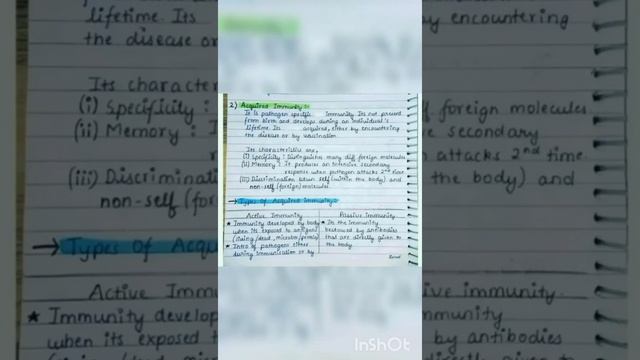 2) Acquired Immunity :-
It is pathogen specific Immunity. Its not present
from birth and develops during an individual's
lifetime. Its acquired, either by encountering
the disease or by vaccination.
Its characteristics are,
(i) Specificity : Distinguishes many diff foreign molecules
(ii) Memory : It produces an intensive secondary
response when pathogen attacks 2nd time.
(iii) Discrimination b/wn self (within the body) and
non-self (foreign) molecules.
→ Types of Acquired Immunity :-
Active Immunity
★ Immunity developed by body
when its exposed to antigens
(living/dead, microbes/
★ Intro of pathogens either
during immunisation or by
Passive immunity.
★ In the immunity
bestowed by antibodies
that are directly given to
the body.
lifetime. Its
the disease or
Its character
(i) Specificity :
(ii) Memory : I
(iii) Discriminati
non-self (for
→ Types of Acqu
Active Immu
★ Immunity develop
when its exposed t
by encountering
foreign molecules
secondary
attacks 2nd time.
the body) and
assive immunity.
mmunity
by antibodies
InShOt